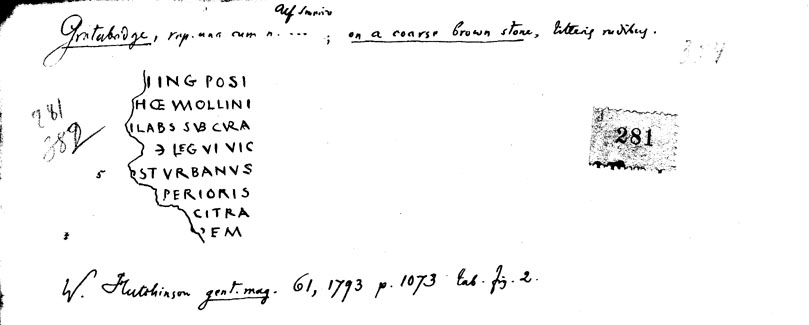 Gretabridge, rep. una cum n. ....; on a coarse brown stone, litteris rudibus.
IING POSI
HŒ MOLLINI
ILABS SVB CVRA
Э LEG VI VIC
5 STVRBANVS
PERIORIS
CITRA
EM
281
382
281
W. Hutchinson gent. mag. 61, 1793 p. 1073 tab. fig. 2.